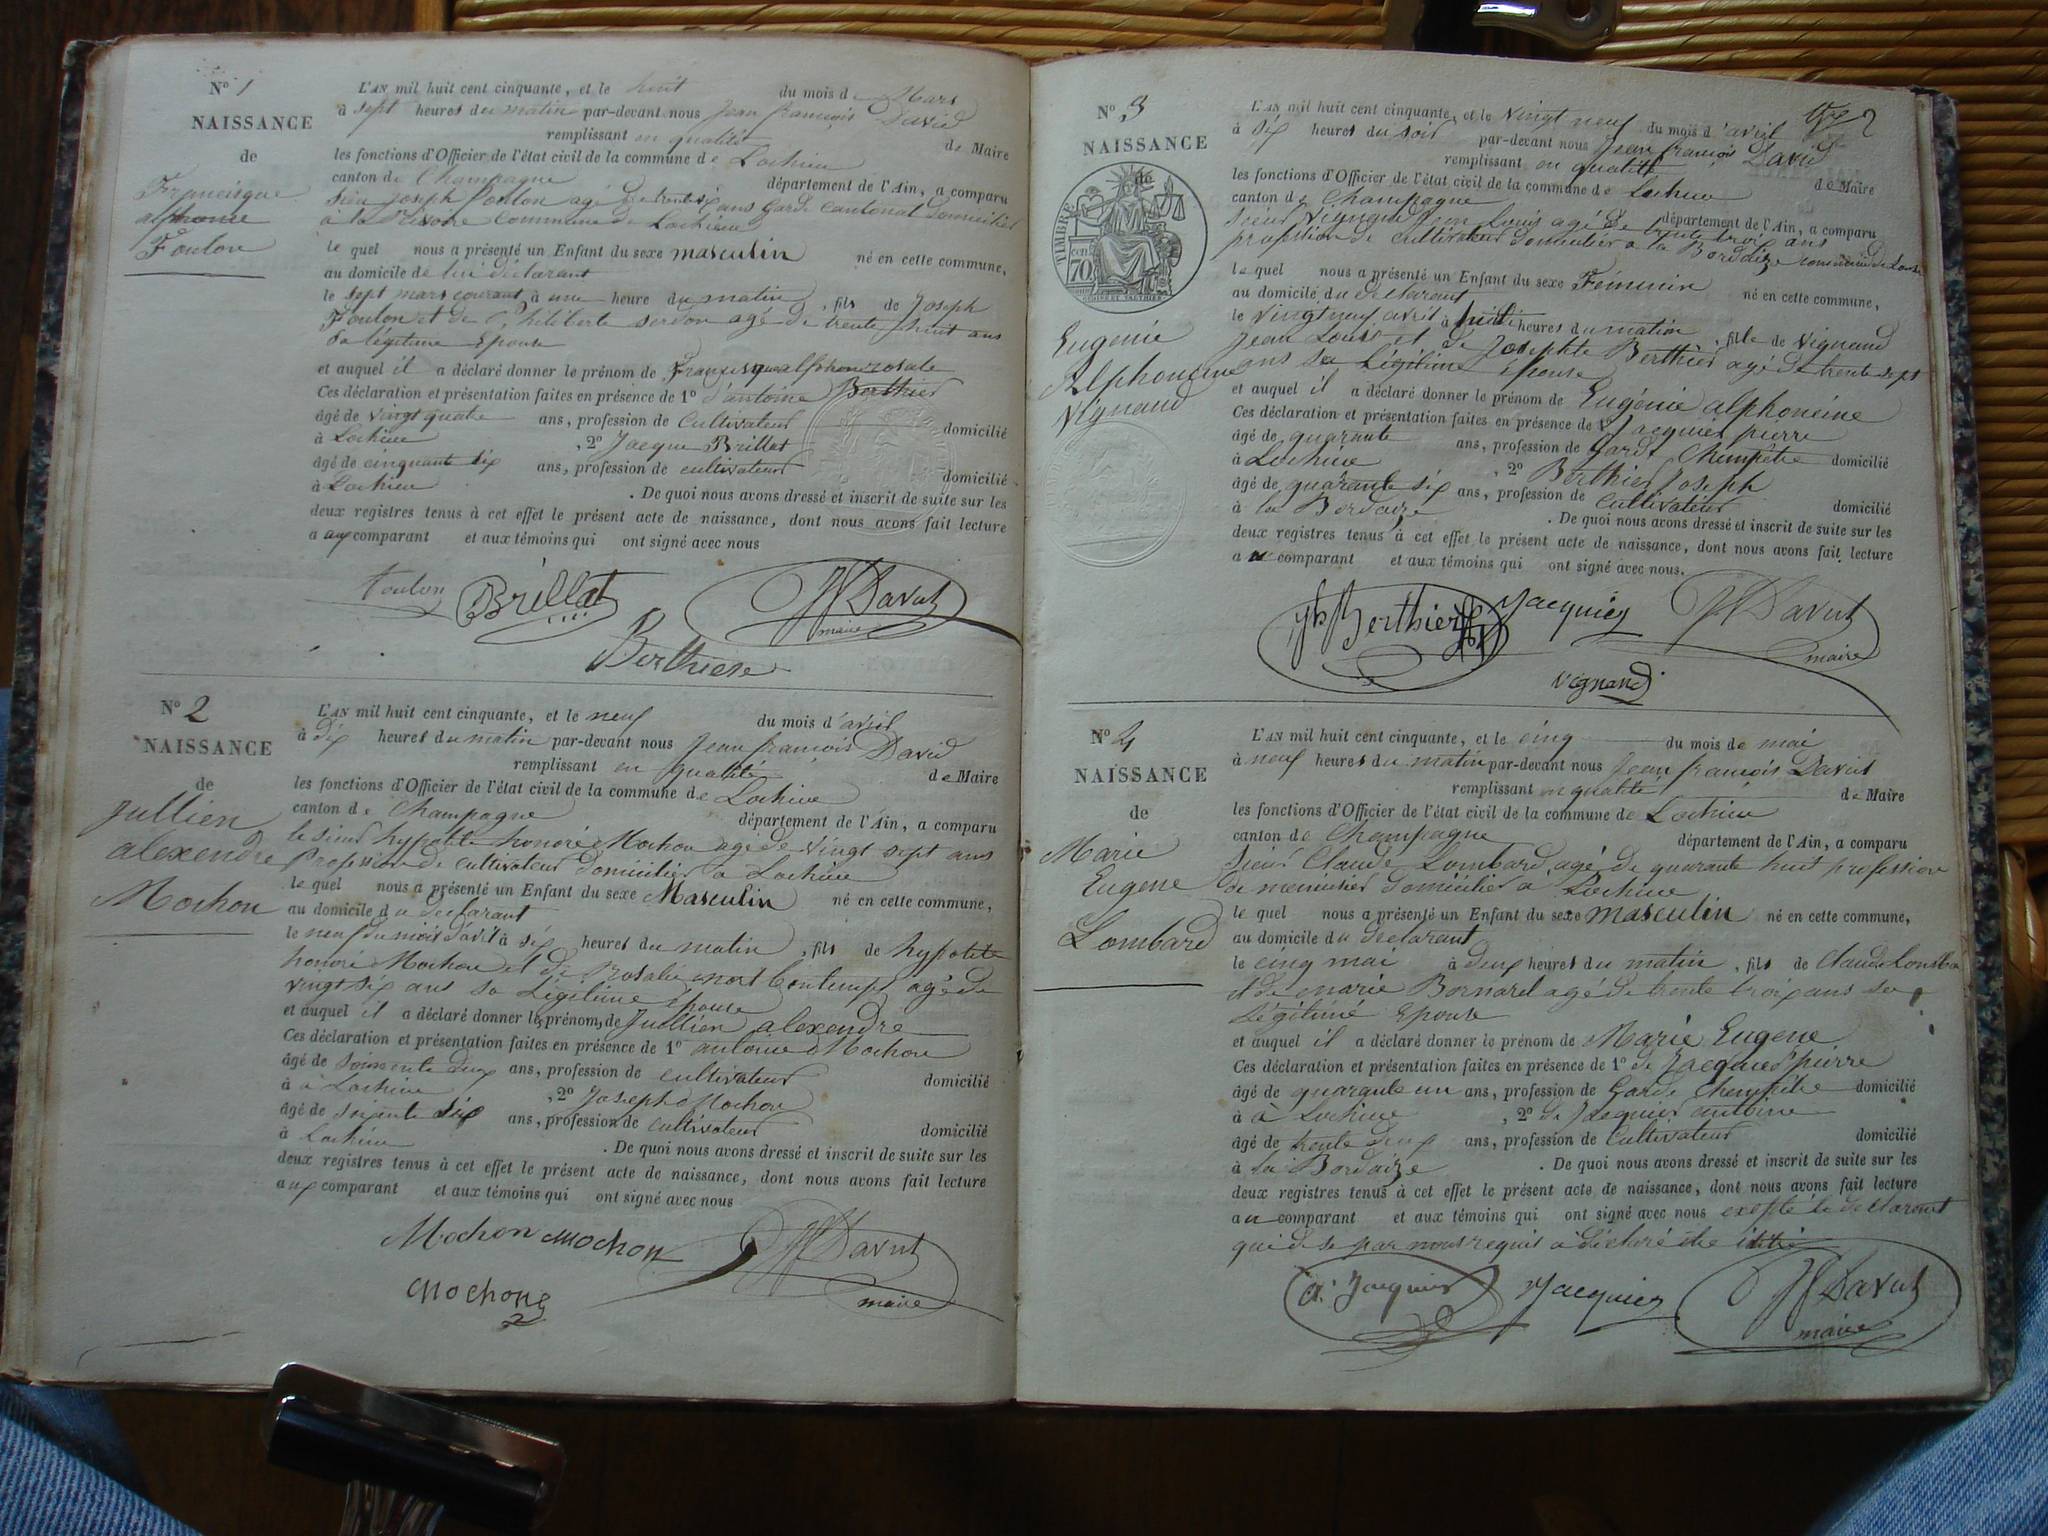 Nº 1
NAISSANCE
de
Francisque
alphonse
Foulon
L'AN mil huit cent cinquante, et le huit du mois de Mars
à sept heures du matin par-devant nous Jean françois David
remplissant en qualité de Maire
les fonctions d'Officier de l'état civil de la commune de Lochieu
canton de Champagne département de l'Ain, a comparu
sieu Joseph Foulon agé de trente six ans garde cantonal domicilié
à la commune de Lochieu
le quel nous a présenté un Enfant du sexe masculin né en cette commune,
au domicile de lui déclarant
le sept mars courant à une heure du matin, fils de Joseph
Foulon et de Philiberte serdon agé de trente huit ans
sa légitime Epouse
et auquel il a déclaré donner le prénom de
Ces déclaration et présentation faites en présence de 1º d'antoine Berthier
âgé de vingt quatre ans, profession de Cultivateur domicilié
à Lochieu, 2º Jacque Brillat
âgé de cinquante six ans, profession de cultivateur domicilié
à Lochieu. De quoi nous avons dressé et inscrit de suite sur les
deux registres tenus à cet effet le présent acte de naissance, dont nous avons fait lecture
a aux comparant et aux témoins qui ont signé avec nous
foulon Brillat JF David
maire
Berthier
Nº 2
NAISSANCE
de
Jullien
alexendre
Mochon
L'AN mil huit cent cinquante, et le neuf du mois d'avril
à dix heures du matin par-devant nous Jean françois David
remplissant en qualité de Maire
les fonctions d'Officier de l'état civil de la commune de Lochieu
canton de Champagne département de l'Ain, a comparu
le sieur hypolite honoré Mochon agé de vingt sept ans
profession de cultivateur domicilié a Lochieu
le quel nous a présenté un Enfant du sexe Masculin né en cette commune,
au domicile du déclarant
le neuf du mois d'avril à six heures du matin, fils de hypolite
honoré Mochon et de Rosalie mort Contemps agé de
vingt six ans sa Légitime épouse
et auquel il a déclaré donner le prénom de Jullien alexendre
Ces déclaration et présentation faites en présence de 1º antoine Mochon
âgé de soixente deux ans, profession de cultivateur domicilié
à à Lochieu, 2º Joseph Mochon
âgé de soixente six ans, profession de cultivateur domicilié
à Lochieu. De quoi nous avons dressé et inscrit de suite sur les
deux registres tenus à cet effet le présent acte de naissance, dont nous avons fait lecture
aux comparant et aux témoins qui ont signé avec nous
Mochon Mochon JF David
maire
Mochon
Nº 3
NAISSANCE
de
TIMBRE
70
Eugenie
Alphonsine
Vignand
2
L'AN mil huit cent cinquante, et le vingt neuf du mois d'avril
à six heures du soir par-devant nous Jean françois David
remplissant en qualité de Maire
les fonctions d'Officier de l'état civil de la commune de Lochieu
canton de Champagne département de l'Ain, a comparu
sieur Vignand Jean Louis agé de trente trois ans
profession de cultivateur domicilié a la Bordaize commune de
le quel nous a présenté un Enfant du sexe Féminin né en cette commune,
au domicile du declarant
le vingt neuf avril à huit heures du matin, fille de Vignand
Jean Louis et de Josephte Berthier agé de trente sept
ans sa Légitime épouse
et auquel il a déclaré donner le prénom de Eugénie alphoncine
Ces déclaration et présentation faites en présence de 1º Jacquier pierre
âgé de quarante ans, profession de Garde Chempêtre domicilié
à Lochieu, 2º Berthier Joseph
âgé de quarante six ans, profession de Cultivateur domicilié
à la Bordaize. De quoi nous avons dressé et inscrit de suite sur les
deux registres tenus à cet effet le présent acte de naissance, dont nous avons fait lecture
a comparant et aux témoins qui ont signé avec nous.
Jh Berthier Jacquier JF David
maire
vignand
Nº 4
NAISSANCE
de
Marie
Eugene
Lombard
L'AN mil huit cent cinquante, et le cinq du mois de mai
à neuf heures du matin par-devant nous Jean françois David
remplissant en qualité de Maire
les fonctions d'Officier de l'état civil de la commune de Lochieu
canton de Champagne département de l'Ain, a comparu
sieur Claude Lombard, agé de quarante huit profession
de menuisier domicilier a Lochieu
le quel nous a présenté un Enfant du sexe masculin né en cette commune,
au domicile du declarant
le cinq mai à deux heures du matin, fils de Claude Lombard
et de marie Bornard agé de trente trois ans sa
Légitime Epouse
et auquel il a déclaré donner le prénom de Marie Eugene
Ces déclaration et présentation faites en présence de 1º de Jacquier pierre
âgé de quarante un ans, profession de Garde Chempêtre domicilié
à à Lochieu, 2º de Jacquier antoine
âgé de trente deux ans, profession de Cultivateur domicilié
à la Bordaize. De quoi nous avons dressé et inscrit de suite sur les
deux registres tenus à cet effet le présent acte de naissance, dont nous avons fait lecture
au comparant et aux témoins qui ont signé avec nous exepté le declarant
qui de se par nous requis a déclaré
a. Jacquier Jacquier JF David
maire